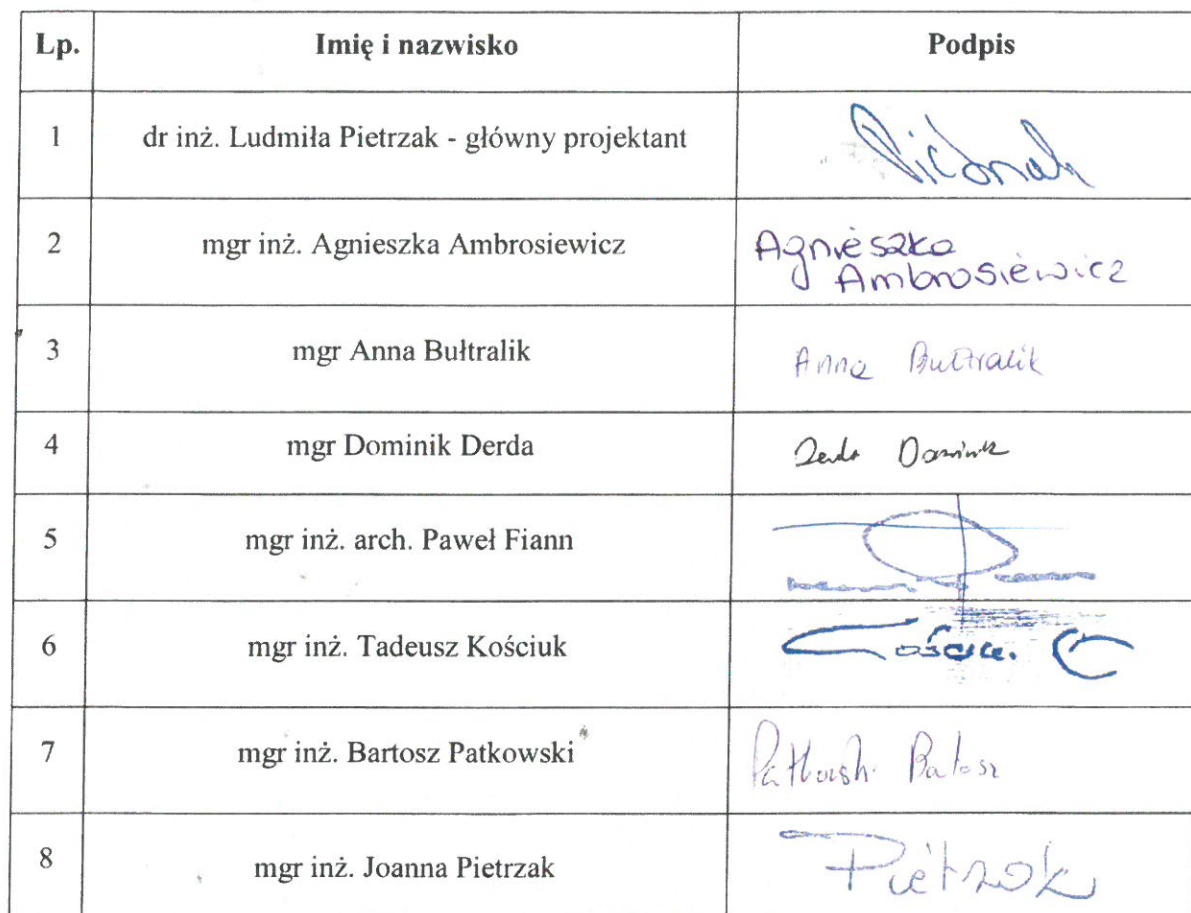 Lp. Imię i nazwisko Podpis
1 dr inż. Ludmiła Pietrzak - główny projektant
2 mgr inż. Agnieszka Ambrosiewicz Agnieszka
Ambrosiewicz
3 mgr Anna Bułtralik Anna Bułtralik
4 mgr Dominik Derda Derda Dominik
5 mgr inż. arch. Paweł Fiann
6 mgr inż. Tadeusz Kościuk
7 mgr inż. Bartosz Patkowski Patkowski Bartosz
8 mgr inż. Joanna Pietrzak Pietrzak